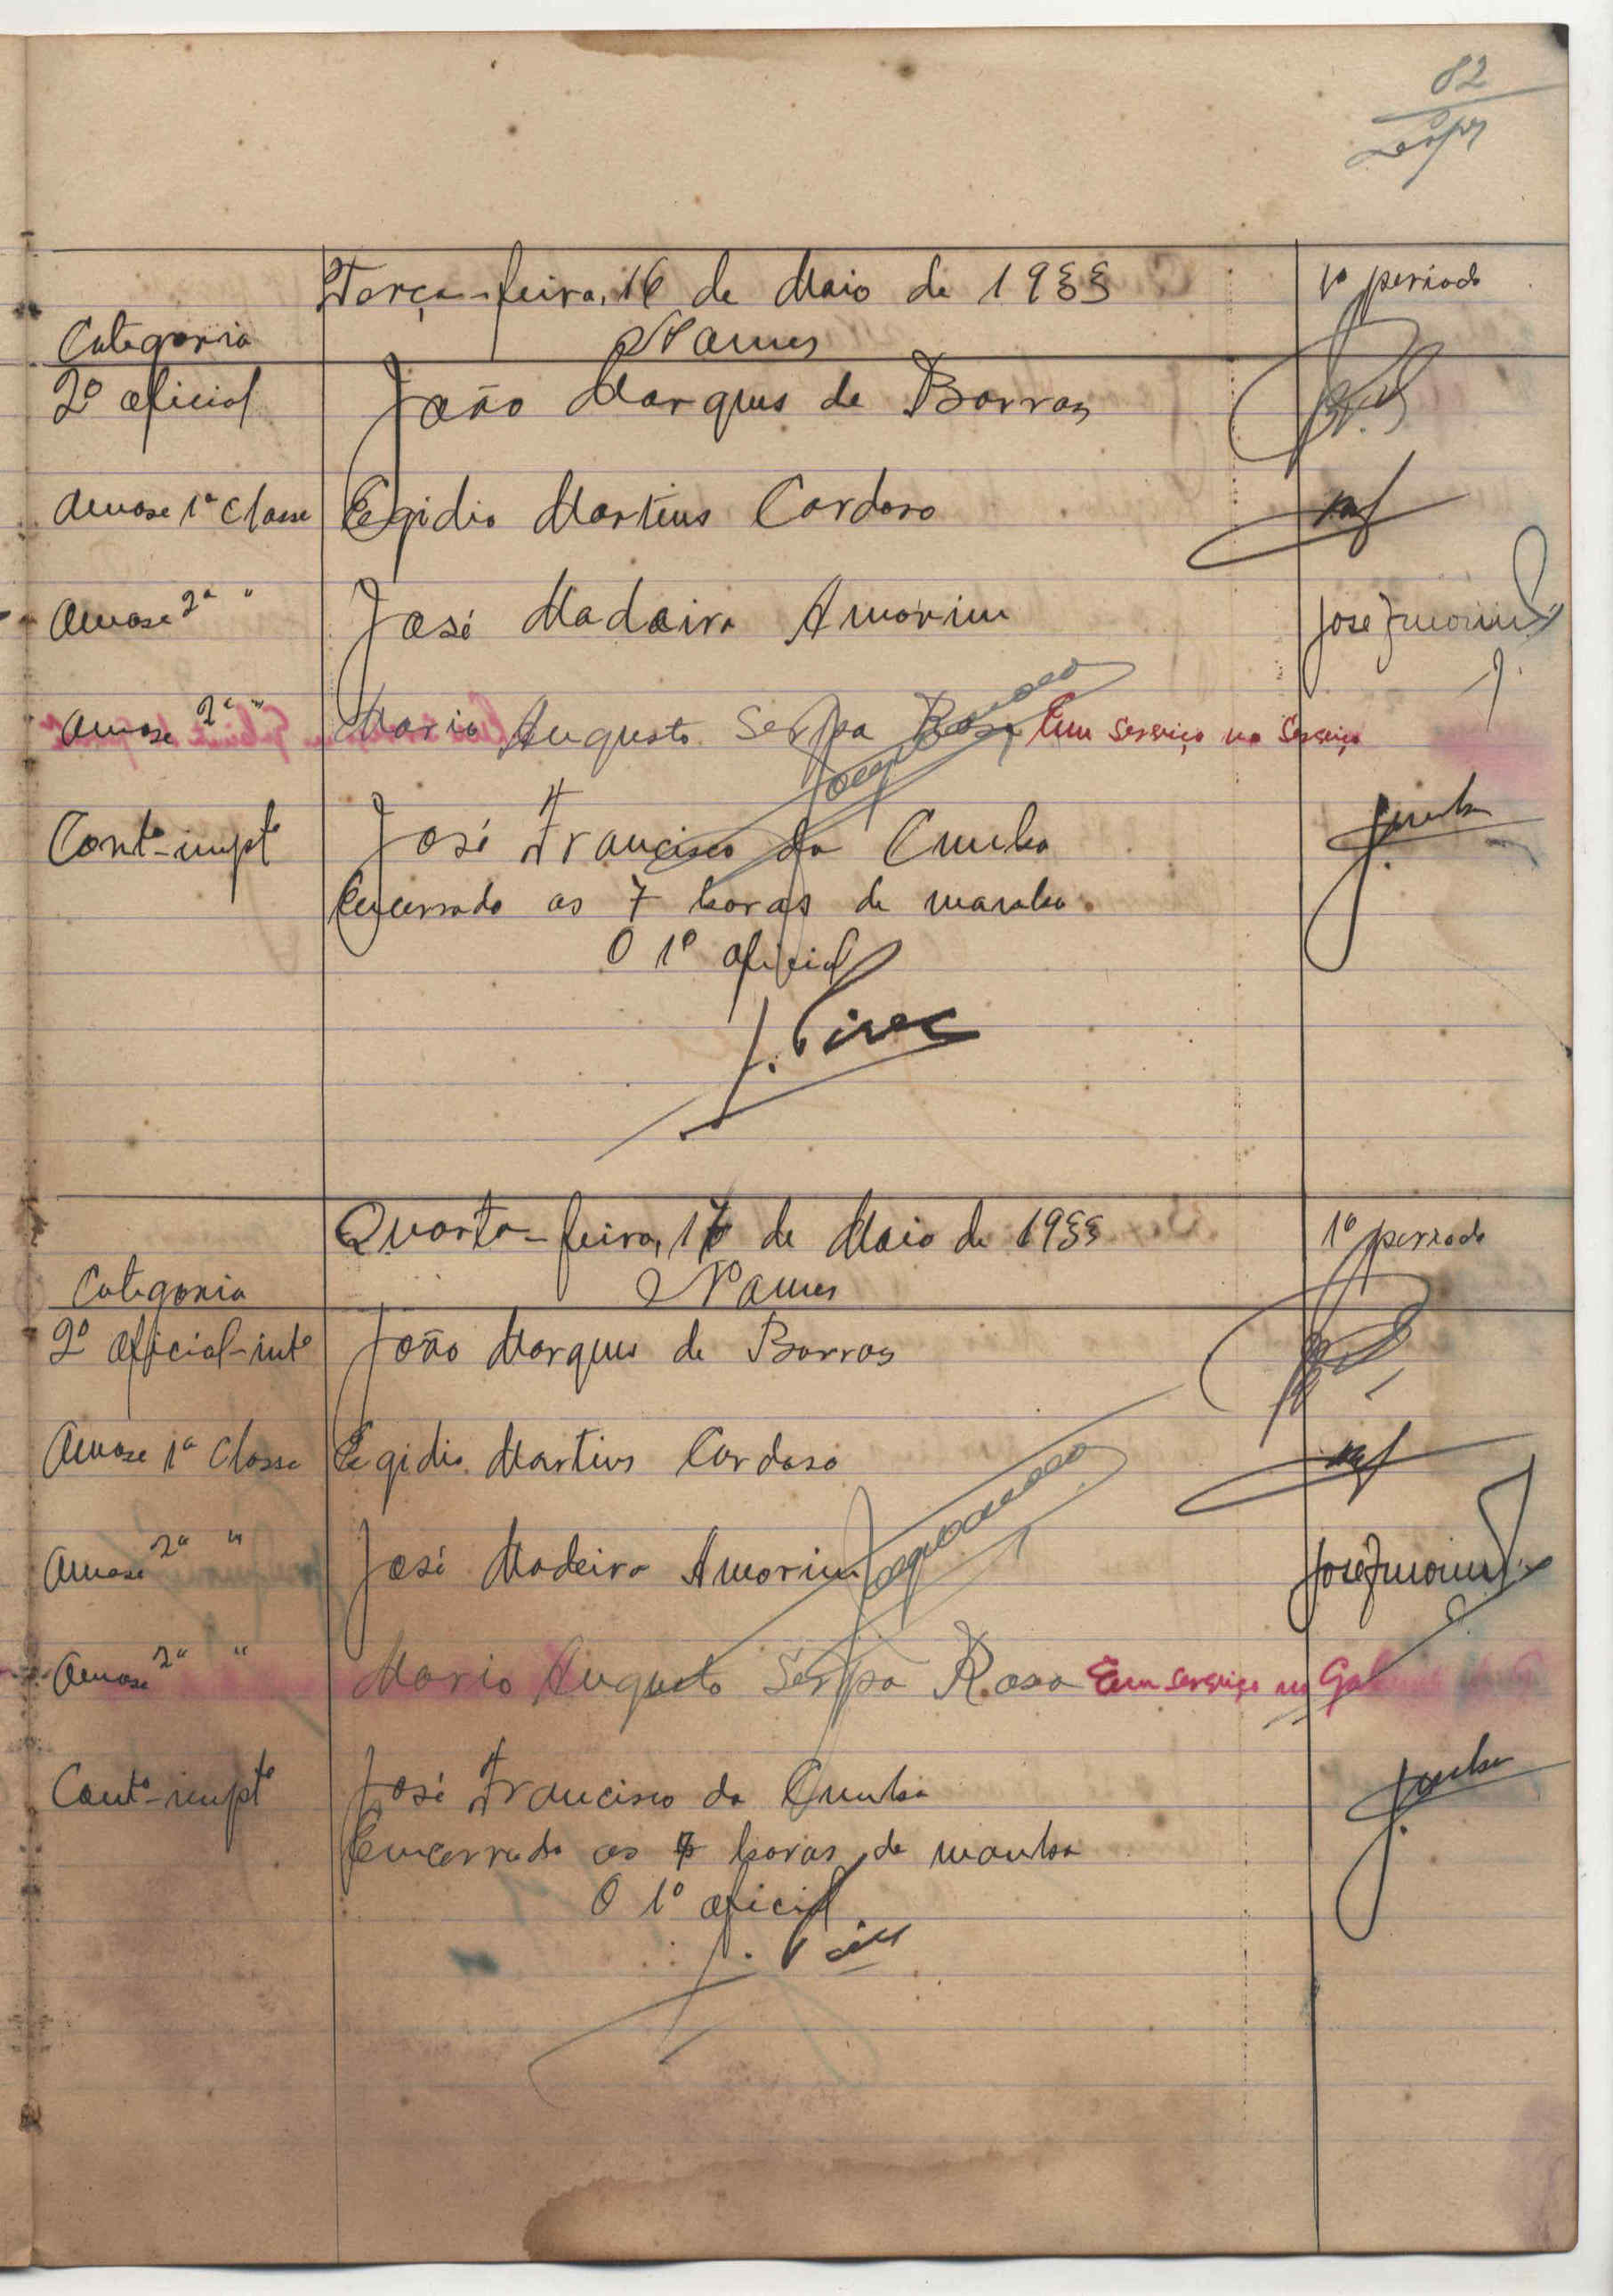 82
Terça-feira, 16 de Maio de 1933
1º periodo
Categoria
Nomes
2º oficial
João Marques de Barros
Amase 1ª Classe
Egidio Martins Cardoso
Amase 2ª "
José Madeira Amorim
José Amorim
Amase 2ª "
Mario Augusto Serpa Rosa Em serviço no Serviço
Contº-imptº
José Francisco da Cunha
JCunha
Encerrado as 7 horas da manha.
O 1º oficial
J. Pires
Quarta-feira, 17 de Maio de 1933
1º periodo
Categoria
Nomes
2º oficial-intº
João Marques de Barros
Amase 1ª Classe
Egidio Martins Cardoso
Amase 2ª "
José Madeira Amorim
José Amorim
Amase 2ª "
Mario Augusto Serpa Rosa Em serviço no
Contº-imptº
José Francisco da Cunha
JCunha
Encerrado as 7 horas da manha
O 1º oficial
J. Pires